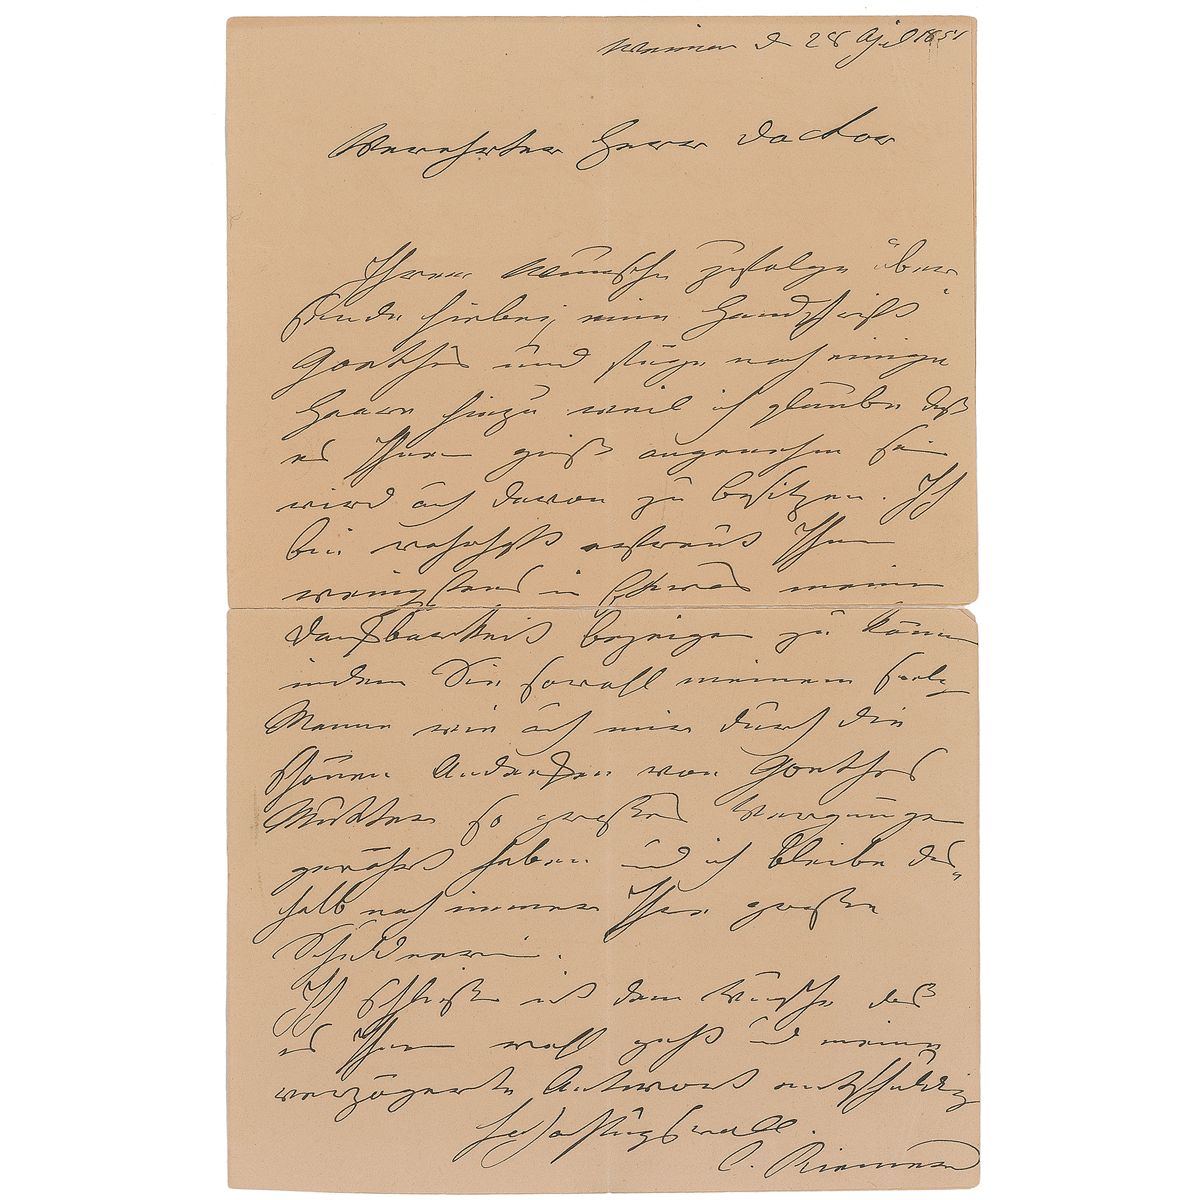 Weimar d 28 April 1851
Verehrter Herr Doctor
Ihrem Wunsche zufolge über
sende hierbei, eine Handschrift
Goethes und füge noch einige
Haare hinzu weil ich glaube daß
es Ihnen gewiß angenehm sein
wird auch davon zu besitzen. Ich
bin wahrhaft erfreut Ihnen
wenigstens in Etwas meine
Dankbarkeit bezeigen zu können
indem Sie sowohl meinem seelg
Manne wie auch mir durch die
schönen Andenken von Goethes
Mutter so großes Vergnügen
gewährt haben und ich bleibe des„
halb noch immer Ihre große
Schuldnerin.
Ich schließe mit dem Wunsche daß
es Ihnen wohl geht und meine
verzögerte Antwort entschuldig
hochachtungsvoll.
C. Riemer